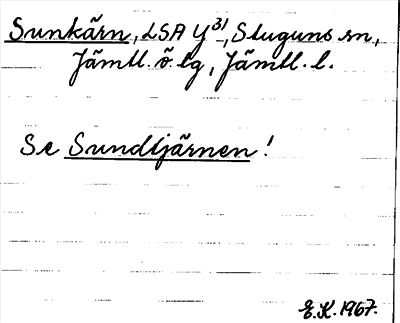 Sunkärn, LSA Y31, Stuguns sn,
Jämtl. ö. lg, Jämtl. l.
Se Sundtjärnen!
E.K. 1967.